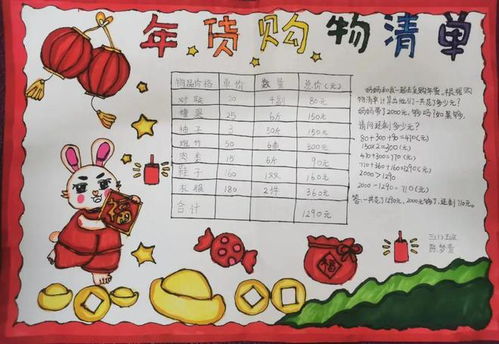 年货购物清单
物品价格 单价 数量 总价(元)
对联 20 4副 80元
糖果 25 6斤 150元
柚子 3 30斤 150元
爆竹 50 6串 300元
肉类 15 6斤 90元
鞋子 160 1双 160元
衣服 180 2件 360元
合计 1290元
妈妈和我一起去采购年货。根据购
物清单计算出他们一共花了多少元?
妈妈带了2000元,够吗?如果够,
请问还剩多少元?
80+300+90=470(元)
150x2=300(元)
470+300=770(元)
770+360+160=1290(元)
2000>1290
2000-1290=710(元)
答:一共花了1290元,2000元够了,还剩710元。
福
福